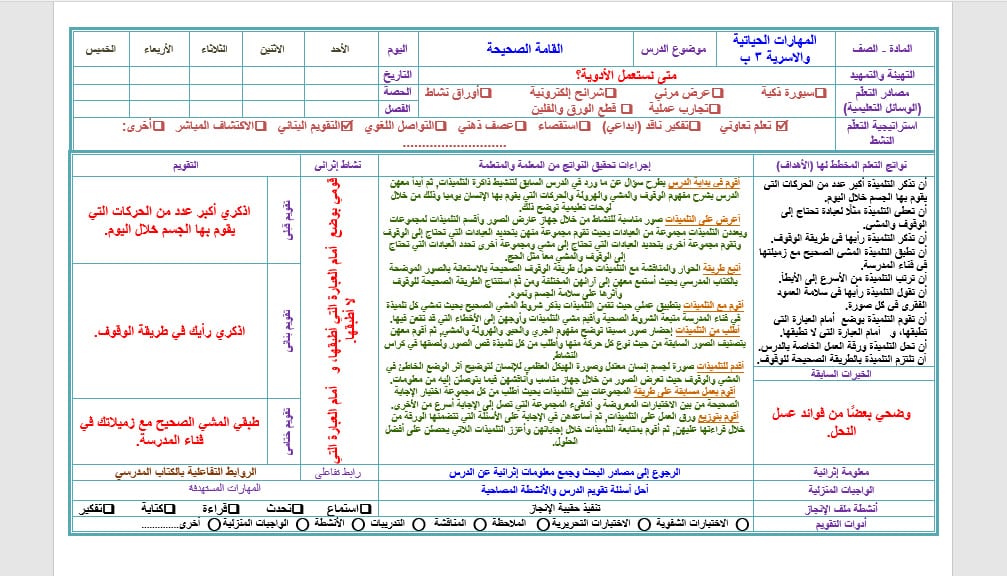 المادة - الصف
المهارات الحياتية
والاسرية ٣ ب
موضوع الدرس
القامة الصحيحة
اليوم
الأحد
الاثنين
الثلاثاء
الأربعاء
الخميس
التهيئة والتمهيد
متى نستعمل الأدوية؟
التاريخ
مصادر التعلّم
(الوسائل التعليمية)
سبورة ذكية
عرض مرئي
شرائح إلكترونية
أوراق نشاط
تجارب عملية
قطع الورق والفلين
الحصة
الفصل
استراتيجية التعلّم
النشط
تعلم تعاوني
تفكير ناقد (ابداعي)
استقصاء
عصف ذهني
التواصل اللغوي
التقويم البنائي
الاكتشاف المباشر
أخرى:
............................
نواتج التعلم المخطط لها (الأهداف)
إجراءات تحقيق النواتج من المعلمة والمتعلمة
نشاط إثرائي
التقويم
أن تذكر التلميذة أكبر عدد من الحركات التي
يقوم بها الجسم خلال اليوم.
أن تعطي التلميذة مثلًا لعبادة تحتاج إلى
الوقوف والمشي.
أن تذكر التلميذة رأيها في طريقة الوقوف.
أن تطبق التلميذة المشي الصحيح مع زميلتها
في فناء المدرسة.
أن ترتب التلميذة من الأسرع إلى الأبطأ.
أن تقول التلميذة رأيها في سلامة العمود
الفقري في كل صورة.
أن تقوم التلميذة بوضع أمام العبارة التي
تطبقها، و أمام العبارة التي لا تطبقها.
أن تحل التلميذة ورقة العمل الخاصة بالدرس.
أن تلتزم التلميذة بالطريقة الصحيحة للوقوف.
الخبرات السابقة
وضحي بعضًا من فوائد عسل
النحل.
أقوم في بداية الدرس بطرح سؤال عن ما ورد في الدرس السابق لتنشيط ذاكرة التلميذات, ثم أبدأ معهن
الدرس بشرح مفهوم الوقوف والمشي والهرولة والحركات التي يقوم بها الإنسان يوميا وذلك من خلال
لوحات تعليمية توضح ذلك.
أعرض على التلميذات صور مناسبة للنشاط من خلال جهاز عارض الصور وأقسم التلميذات لمجموعات
ويعددن التلميذات مجموعة من العبادات بحيث تقوم مجموعة منهن بتحديد العبادات التي تحتاج إلى الوقوف
وتقوم مجموعة أخرى بتحديد العبادات التي تحتاج إلى مشي ومجموعة أخرى تحدد العبادات التي تحتاج
إلى الوقوف والمشي معاً مثل الحج.
أتبع طريقة الحوار والمناقشة مع التلميذات حول طريقة الوقوف الصحيحة بالاستعانة بالصور الموضحة
بالكتاب المدرسي بحيث أستمع معهن إلى آرائهن المختلفة ومن ثم استنتاج الطريقة الصحيحة للوقوف
وأثرها على سلامة الجسم ونموه.
أقوم مع التلميذات بتطبيق عملي حيث تقمن التلميذات بذكر شروط المشي الصحيح بحيث تمشي كل تلميذة
في فناء المدرسة متبعة الشروط الصحيحة وأقيم مشي التلميذات وأوجهن إلى الأخطاء التي قد تقعن فيها.
أطلب من التلميذات إحضار صور مسبقا توضح مفهوم الجري والحبو والهرولة والمشي, ثم أقوم معهن
بتصنيف الصور السابقة من حيث نوع كل حركة منها وأطلب من كل تلميذة قص الصور ولصقها في كراس
النشاط.
أقدم للتلميذات صورة لجسم إنسان معتدل وصورة الهيكل العظمي للإنسان لتوضيح أثر الوضع الخاطئ في
المشي والوقوف حيث تعرض الصور من خلال جهاز مناسب وأناقشهن فيما يتوصلن إليه من معلومات.
أقوم بعمل مسابقة على طريقة المجموعات بين التلميذات بحيث أطلب من كل مجموعة اختيار الإجابة
الصحيحة من بين الاختيارات المعروضة و أكافيء المجموعة التي تصل إلى الإجابة أسرع من الأخرى.
أقوم بتوزيع ورق العمل على التلميذات, ثم أساعدهن في الإجابة على الأسئلة التي تتضمنها الورقة من
خلال قراءتها عليهن, ثم أقوم بمتابعة التلميذات خلال إجاباتهن وأعزز التلميذات اللاتي يحصلن على أفضل
الحلول.
قومي بوضع أمام العبارة التي أطبقها، و أمام العبارة التي
لا أطبقها.
تقويم قبلي
اذكري أكبر عدد من الحركات التي
يقوم بها الجسم خلال اليوم.
تقويم بنائي
اذكري رأيك في طريقة الوقوف.
تقويم ختامي
طبقي المشي الصحيح مع زميلاتك في
فناء المدرسة.
معلومة إثرائية
الرجوع إلى مصادر البحث وجمع معلومات إثرائية عن الدرس
رابط تفاعلي
الروابط التفاعلية بالكتاب المدرسي
الواجبات المنزلية
أحل أسئلة تقويم الدرس والأنشطة المصاحبة
المهارات المستهدفة
أنشطة ملف الإنجاز
تنفيذ حقيبة الإنجاز
استماع
تحدث
قراءة
كتابة
تفكير
أدوات التقويم
الاختبارات الشفوية
الاختبارات التحريرية
الملاحظة
المناقشة
التدريبات
الأنشطة
الواجبات المنزلية
أخرى..............